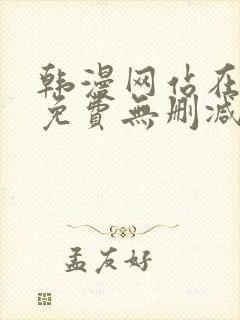 韩漫网站在
免費無删减
孟友好